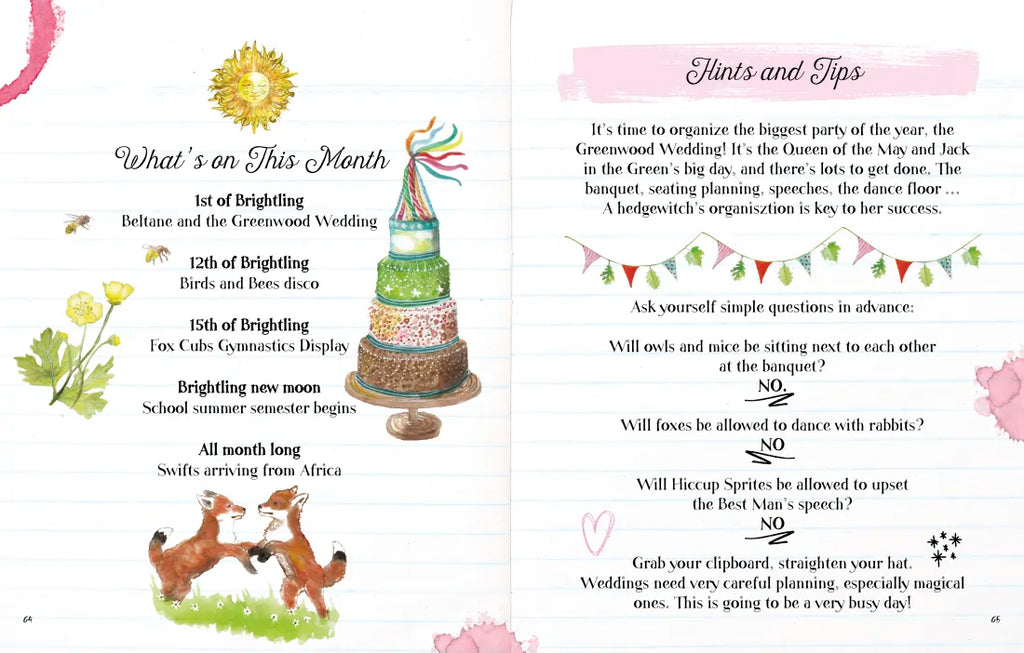 What's on This Month
1st of Brightling
Beltane and the Greenwood Wedding
12th of Brightling
Birds and Bees disco
15th of Brightling
Fox Cubs Gymnastics Display
Brightling new moon
School summer semester begins
All month long
Swifts arriving from Africa
64
Hints and Tips
It's time to organize the biggest party of the year, the
Greenwood Wedding! It's the Queen of the May and Jack
in the Green's big day, and there's lots to get done. The
banquet, seating planning, speeches, the dance floor ...
A hedgewitch's organisztion is key to her success.
Ask yourself simple questions in advance:
Will owls and mice be sitting next to each other
at the banquet?
NO.
Will foxes be allowed to dance with rabbits?
NO
Will Hiccup Sprites be allowed to upset
the Best Man's speech?
NO
Grab your clipboard, straighten your hat.
Weddings need very careful planning, especially magical
ones. This is going to be a very busy day!
65